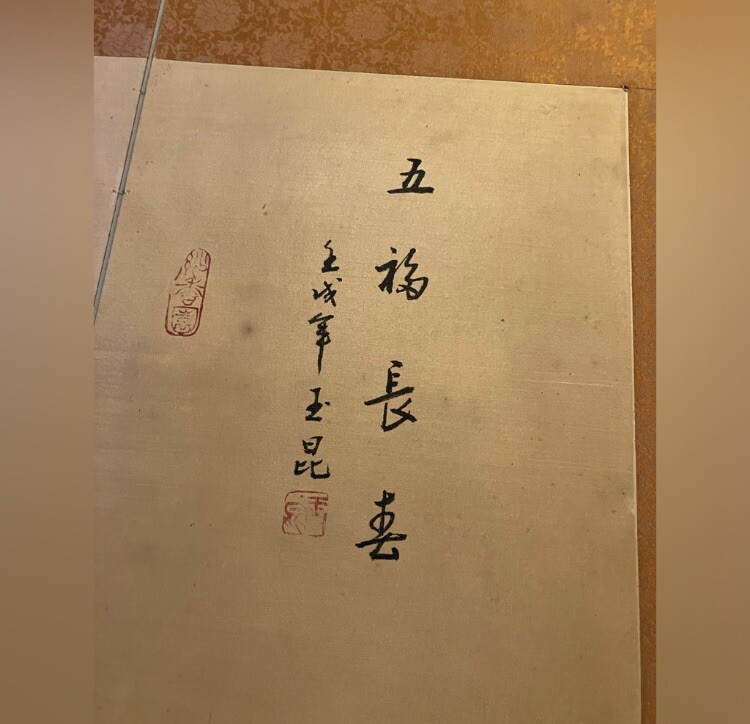 五福長春
壬戌年玉昆